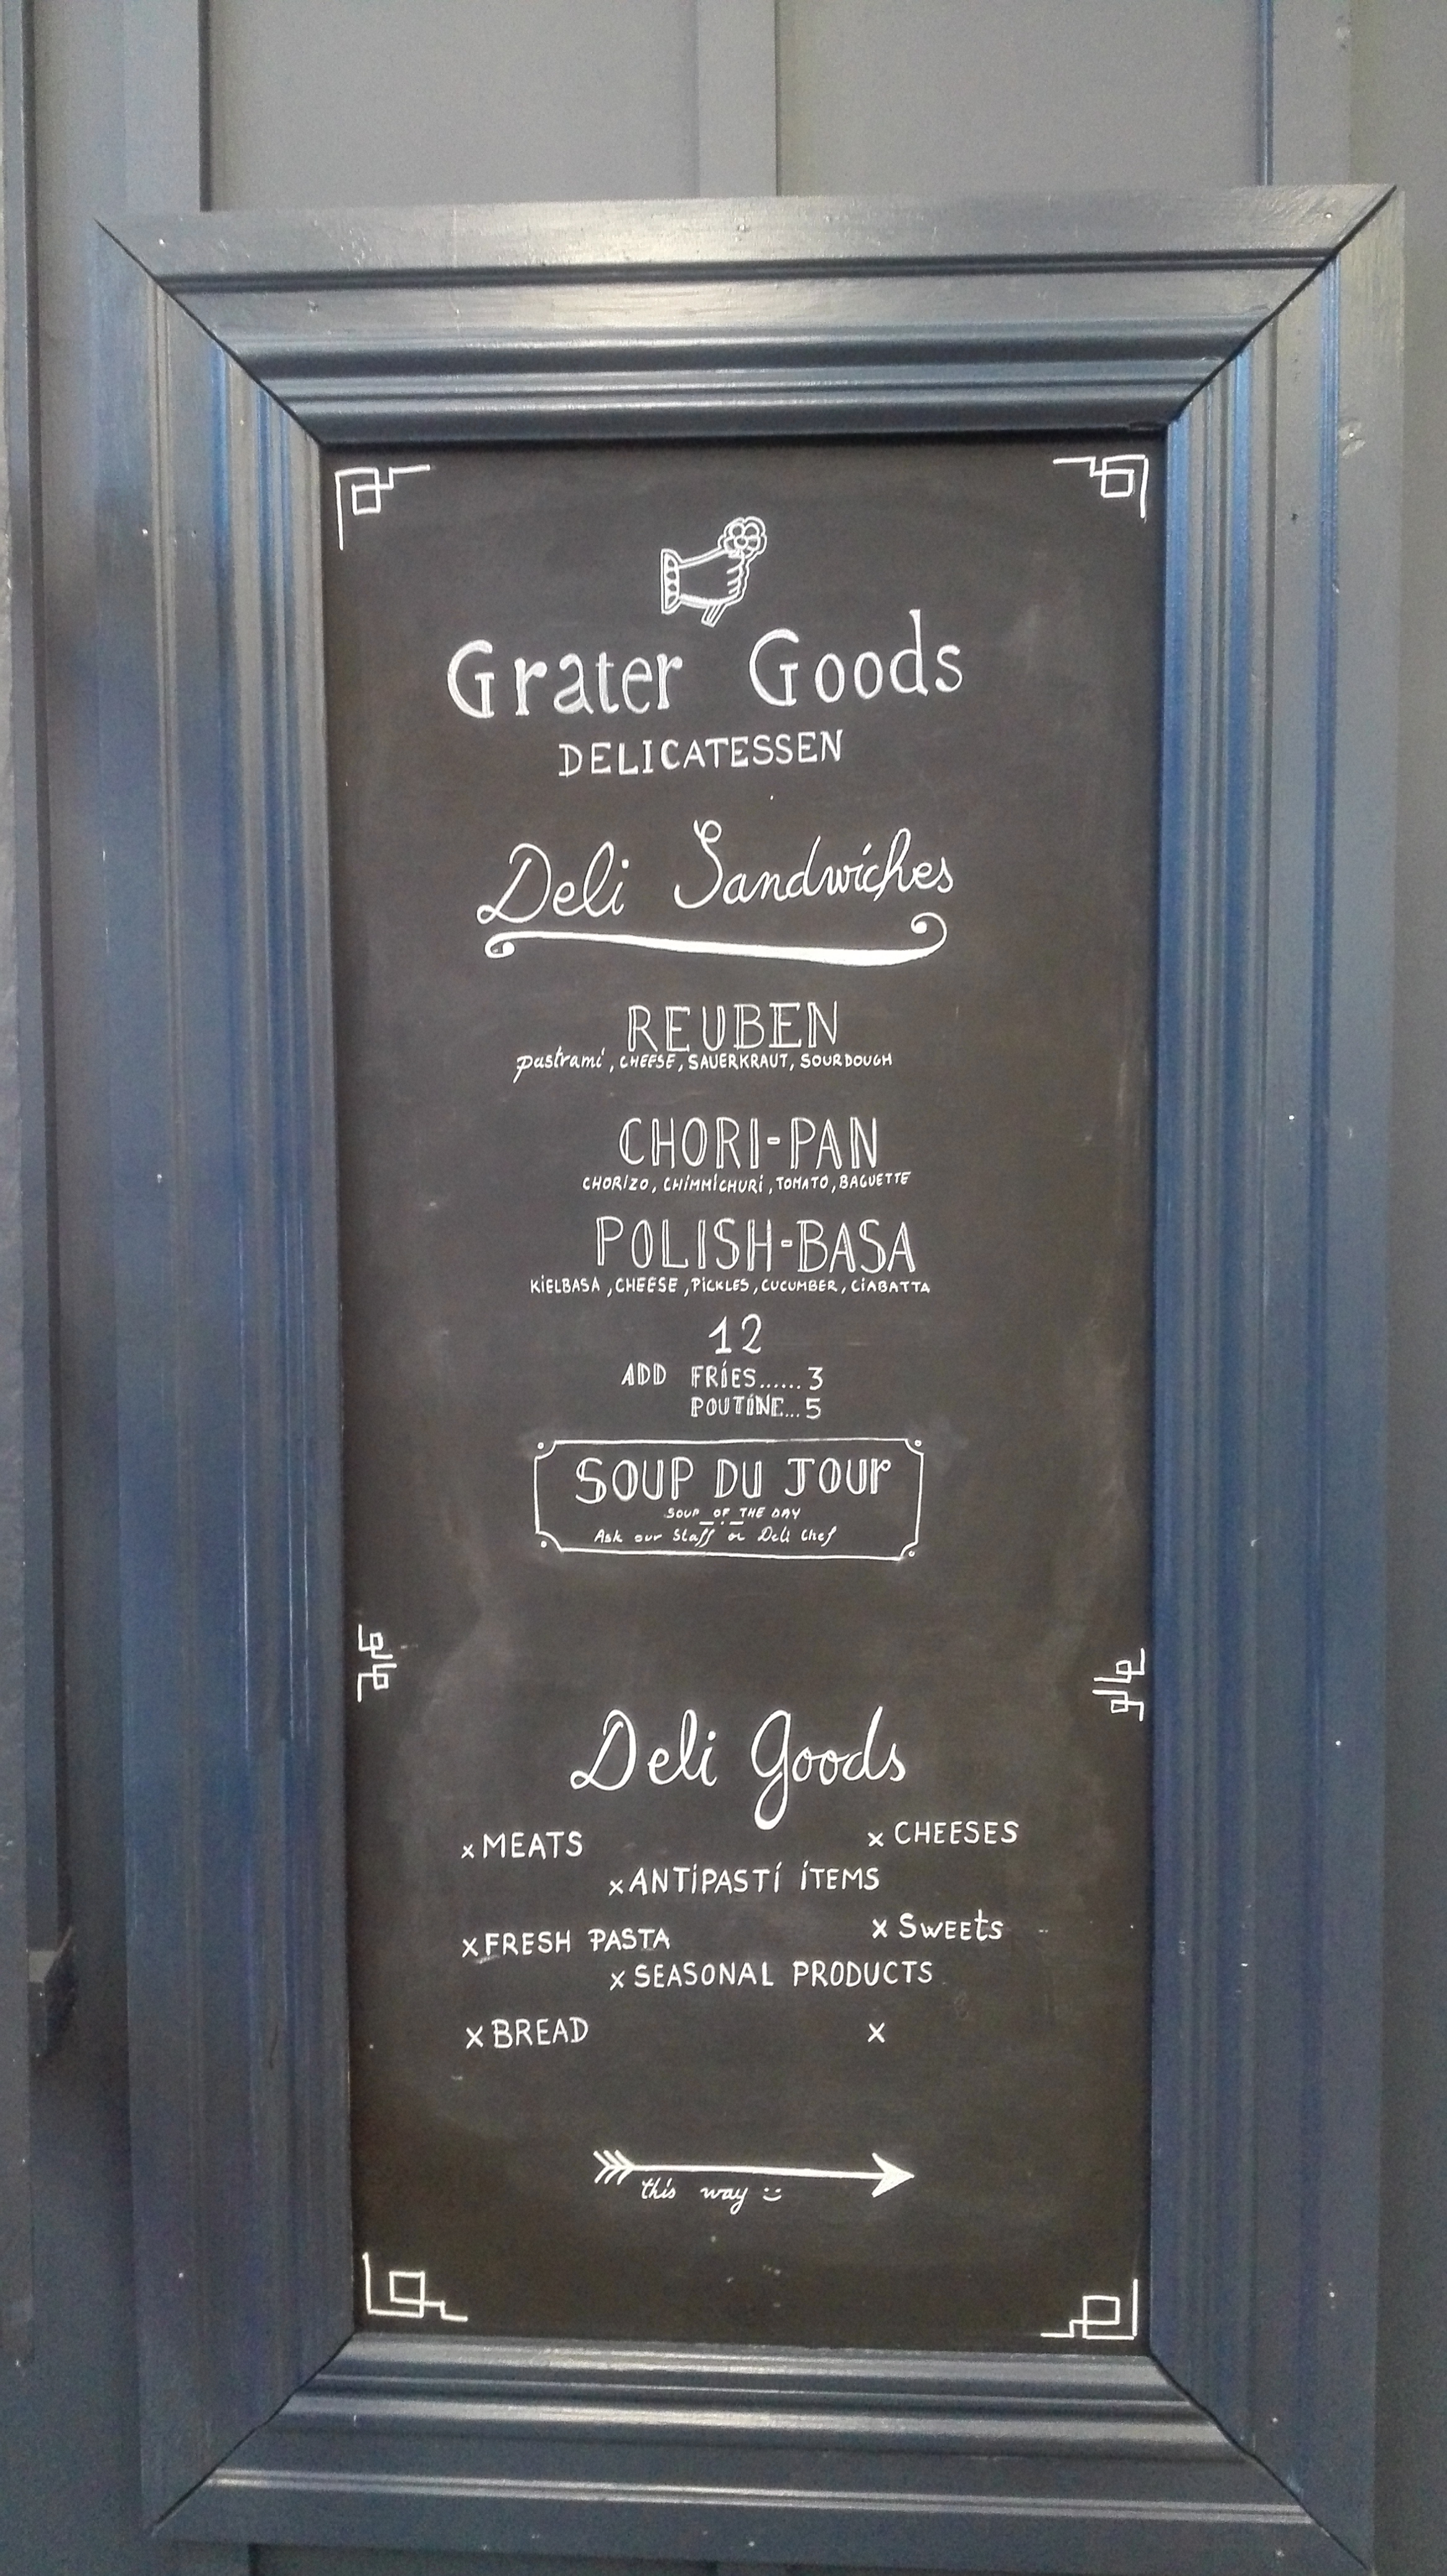 Grater Goods
DELICATESSEN
Deli Sandwiches
REUBEN
pastrami, CHEESE, SAUERKRAUT, SOURDOUGH
CHORI-PAN
CHORIZO, CHIMMICHURI, TOMATO, BAGUETTE
POLISH-BASA
KIELBASA, CHEESE, PICKLES, CUCUMBER, CIABATTA
12
ADD FRIES......3
POUTINE...5
SOUP DU JOUR
SOUP OF THE DAY
Ask our Staff or Deli Chef
Deli Goods
x MEATS x CHEESES
x ANTIPASTI ITEMS
x FRESH PASTA x Sweets
x SEASONAL PRODUCTS
x BREAD x
this way